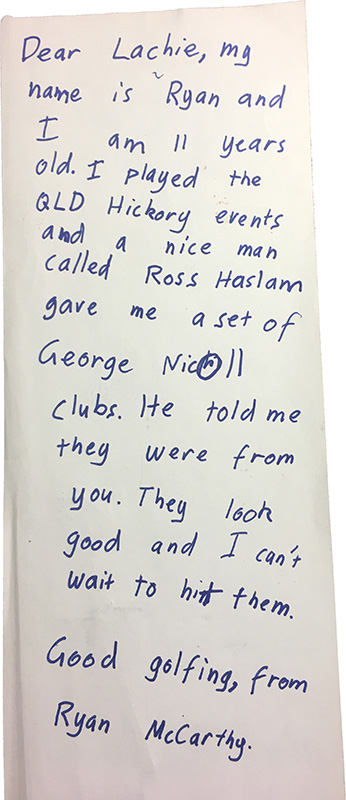 Dear Lachie, my
name is Ryan and
I am 11 years
old. I played the
QLD Hickory events
and a nice man
called Ross Haslam
gave me a set of
George Nicoll
clubs. He told me
they were from
you. They look
good and I can't
wait to hit them.
Good golfing, from
Ryan McCarthy.